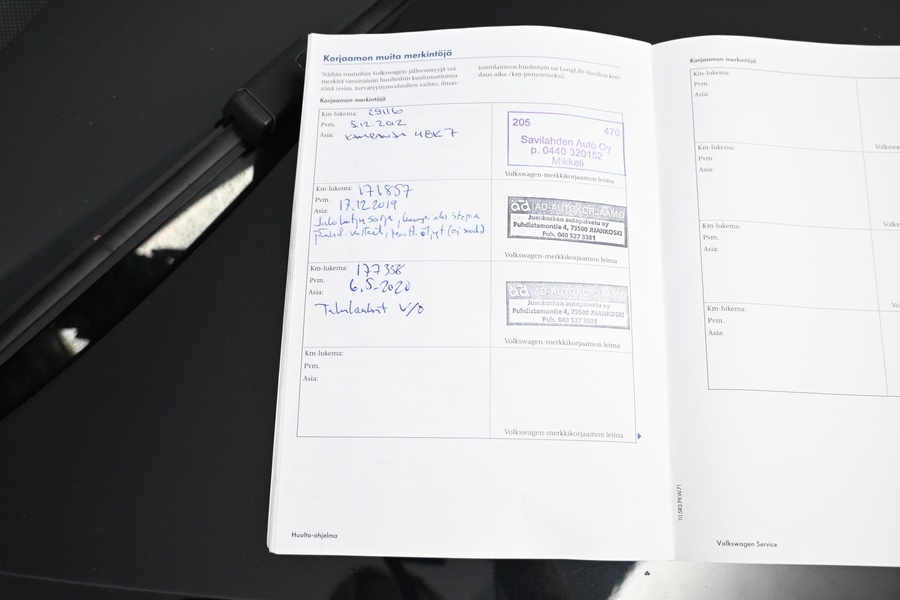 Korjaamon muita merkintöjä
Näihin ruutuihin Volkswagen-jälleenmyyjä voi
merkitä varsinaisiin huoltoihin kuulumattomia
töitä (esim. turvatyynymoduulien vaihto, ilmas-
tointilaitteen huoltotyöt tai LongLife-huollon kor-
daus aika-/km-perusteiseksi).
Korjaamon merkintöjä
Km-lukema: 29116
Pvm. 5.12.2012
Asia: KAMPANJA 48K7
205 470
Savilahden Auto Oy
p. 0440 320152
Mikkeli
Volkswagen-merkkikorjaamon leima
Km-lukema: 171857
Pvm. 17.12.2019
Asia: Jakoketjusarja
ad AD-AUTOKORJAAMO
Juankosken autopalvelu oy
Puhdistamontie 4, 73500 JUANKOSKI
Puh. 040 527 3381
Volkswagen-merkkikorjaamon leima
Km-lukema: 177358
Pvm. 6.5-2020
Asia:
Takalaakerit V/O
ad AD-AUTOKORJAAMO
Juankosken autopalvelu oy
Puhdistamontie 4, 73500 JUANKOSKI
Puh. 040 527 3381
Volkswagen-merkkikorjaamon leima
Km-lukema:
Pvm.
Asia:
Volkswagen-merkkikorjaamon leima
Huolto-ohjelma
Korjaamon merkintöjä
Km-lukema:
Pvm.
Asia:
Volkswa
Km-lukema:
Pvm.
Asia:
Volks
Km-lukema:
Pvm.
Asia:
Vo
Km-lukema:
Pvm.
Asia:
Volkswagen Service